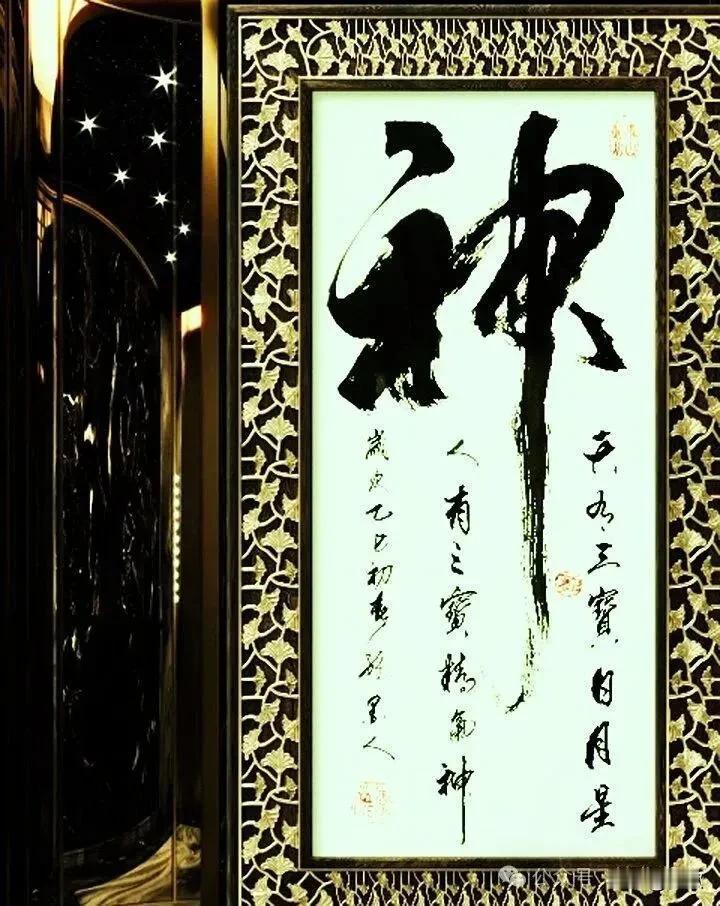 神
天有三寶日月星
人有三寳精氣神
歲次乙巳初春 墨人
公众号